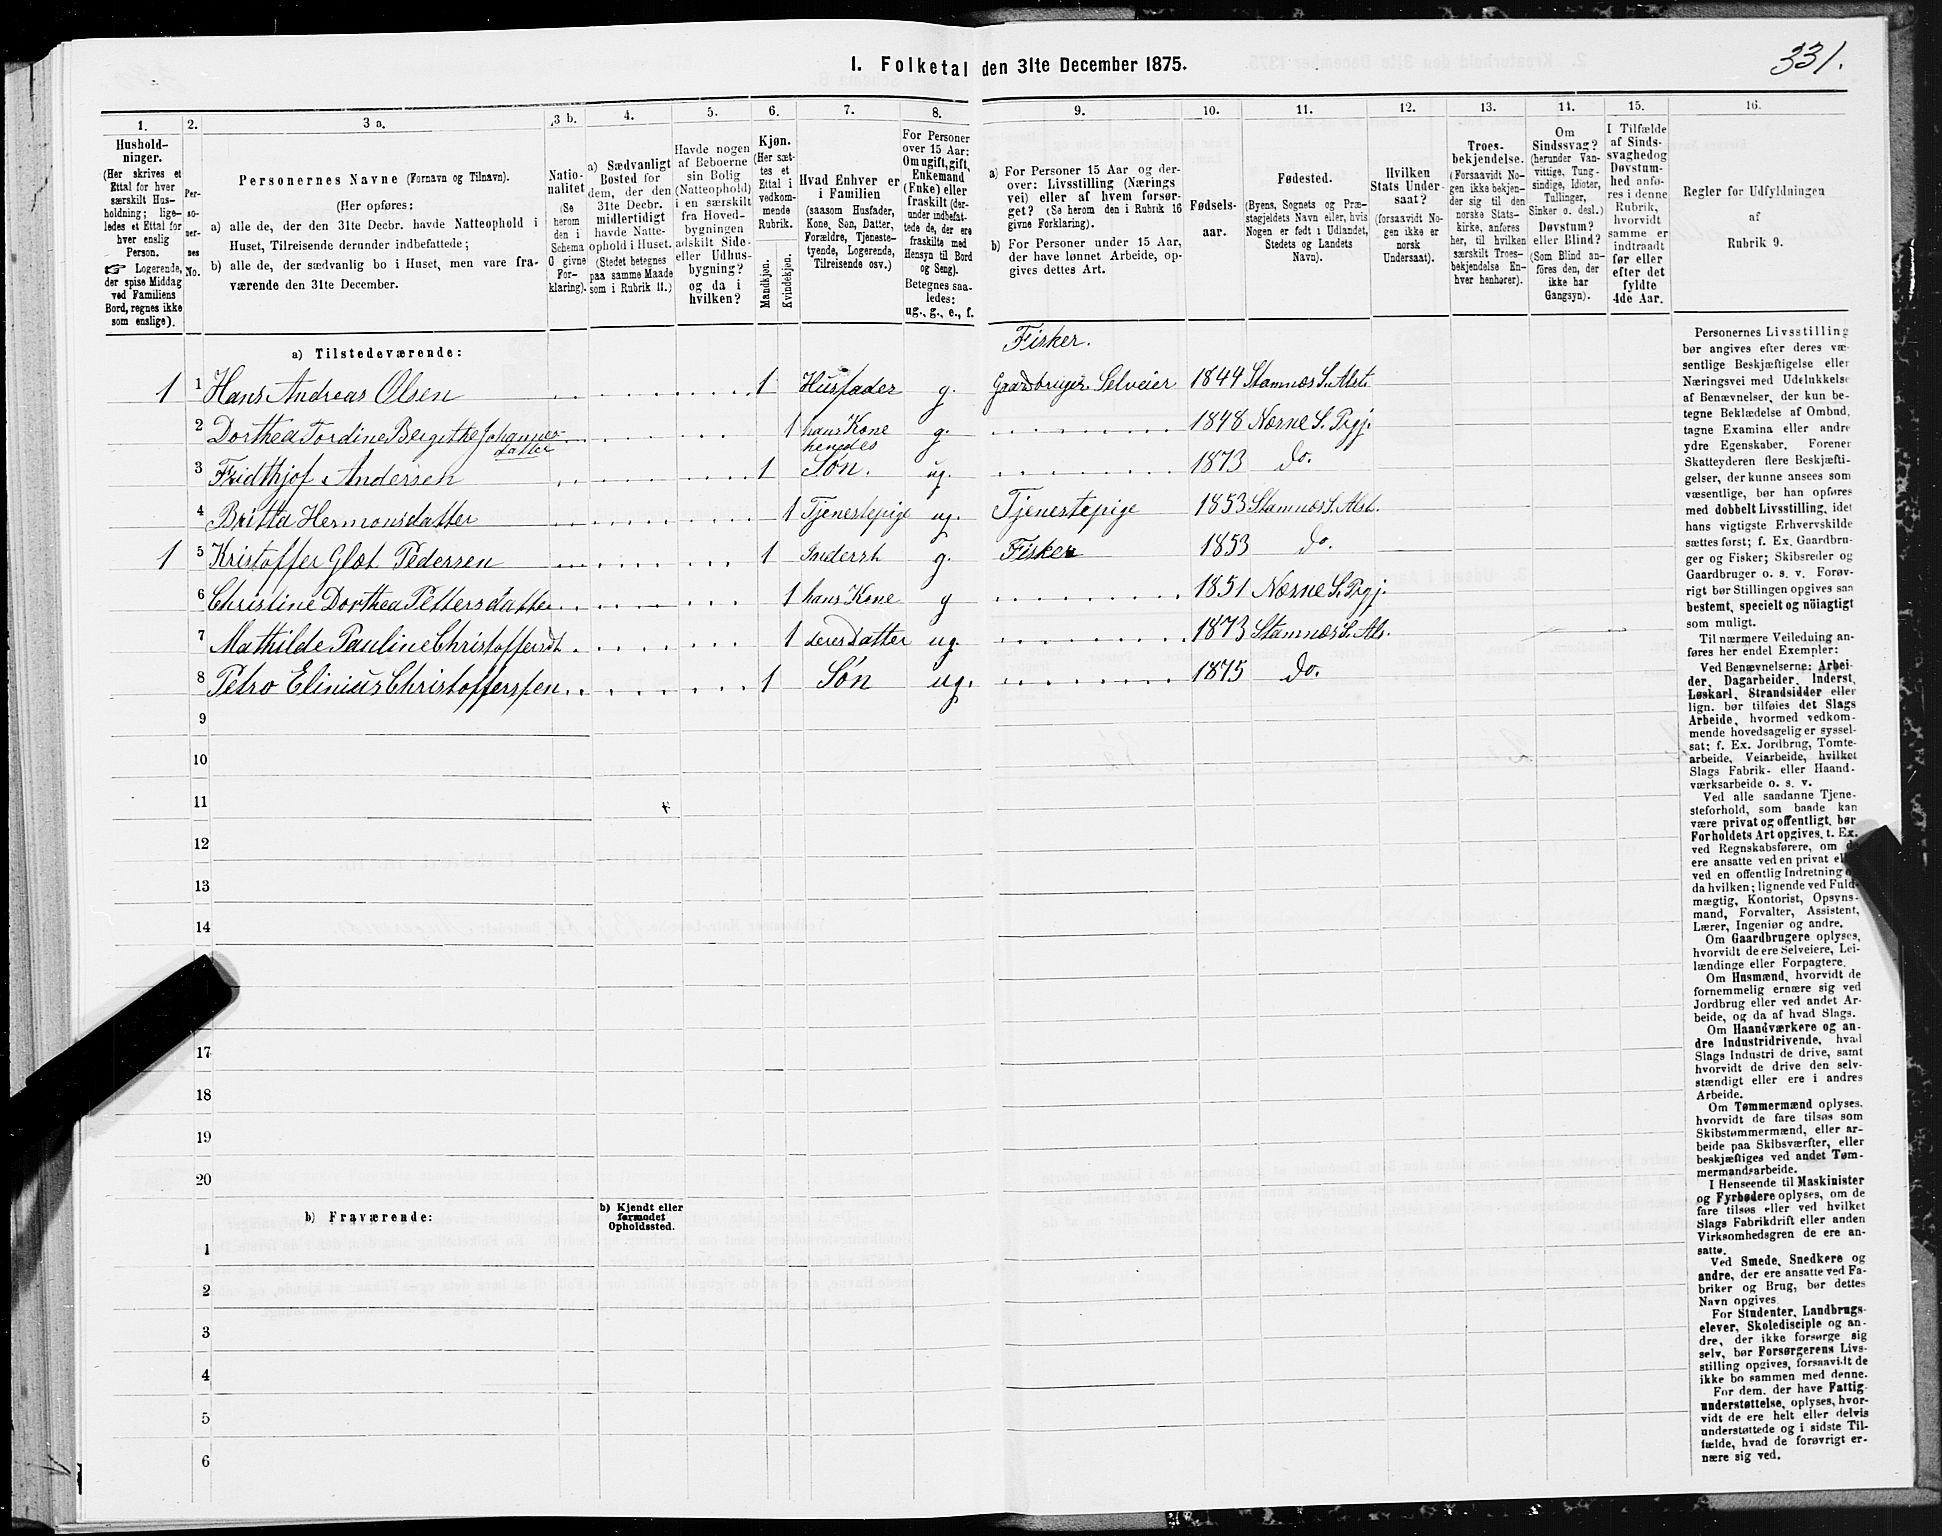 331.
I. Folketal den 31te December 1875.
1. 2. 3 a. 3 b. 4. 5. 6. 7. 8. 9. 10. 11. 12. 13. 14. 15. 16.
Hushold-
ninger.
(Her skrives et
Ettal for hver
særskilt Hus-
holdning; lige-
ledes et Ettal for
hver enslig
Person.
☞ Logerende,
der spise Middag
ved Familiens
Bord, regnes ikke
som enslige).
Per-
so-
ner-
nes
No.
Personernes Navne (Fornavn og Tilnavn).
(Her opføres:
a) alle de, der den 31te Decbr. havde Natteophold i
Huset, Tilreisende derunder indbefattede;
b) alle de, der sædvanlig bo i Huset, men vare fra-
værende den 31te December.
Natio-
nalitet
(Se
herom
den i
Schema
G givne
For-
klaring).
a) Sædvanligt
Bosted for
dem, der den
31te Decbr.
midlertidigt
havde Natte-
ophold i Huset.
(Stedet betegnes
paa samme Maade
som i Rubrik 11.)
Havde nogen
af Beboerne
sin Bolig
(Natteophold)
i en særskilt
fra Hoved-
bygningen
adskilt Side-
eller Udhus-
bygning?
og da i
hvilken?
Kjøn.
(Her sæt-
tes et
Ettal i
vedkom-
mende
Rubrik.
Mandkjøn.
Kvindekjøn.
Hvad Enhver er
i Familien
(saasom Husfader,
Kone, Søn, Datter,
Forældre, Tjeneste-
tyende, Logerende,
Tilreisende osv.)
For Personer
over 15 Aar:
Om ugift, gift,
Enkemand
(Enke) eller
fraskilt (der-
under indbefat-
tede de, der ere
fraskilte med
Hensyn til Bord
og Seng).
Betegnes saa-
ledes:
ug., g., e., f.
a) For Personer 15 Aar og der-
over: Livsstilling (Nærings
vei) eller af hvem forsør-
get? (Se herom den i Rubrik 16
givne Forklaring).
b) For Personer under 15 Aar,
der have lønnet Arbeide, op-
gives dettes Art.
Fødsels-
aar.
Fødested.
(Byens, Sognets og Præ-
stegjeldets Navn eller, hvis
Nogen er født i Udlandet,
Stedets og Landets
Navn).
Hvilken
Stats Under-
saat?
(forsaavidt No-
gen ikke er
norsk
Undersaat).
Troes-
bekjendelse.
(Forsaavidt No-
gen ikke bekjen-
der sig til den
norske Stats-
kirke, anføres
her, til hvilken
særskilt Troes-
bekjendelse En-
hver henhører).
Om
Sindssvag?
(herunder Van-
vittige, Tung-
sindige, Idioter,
Tullinger,
Sinker o. desl.)
Døvstum?
eller Blind?
(Som Blind an-
føres den, der
ikke har
Gangsyn).
I Tilfælde
af Sinds-
svaghed og
Døvstum-
hed anfø-
res i denne
Rubrik,
hvorvidt
samme er
indtraadt
før eller
efter det
fyldte
4de Aar.
Regler for Udfyldningen
af
Rubrik 9.
a) Tilstedeværende:
Fisker.
1 1 Hans Andreas Olsen 1 Husfader g. Gaardbruger Selveier 1844 Stamnæs S. Alst.
2 Dorthea Tordine Bergithe Johannes-
datter 1 hans Kone g. 1848 Næsne S. Prgj.
3 Fridthjof Andersen 1 hendes
Søn. ug. 1873 do.
4 Britta Hermonsdatter 1 Tjenestepige ug. Tjenestepige 1853 Stamnæs S. Alst.
1 5 Kristoffer Glæt Pedersen 1 Inderst g. Fisker 1853 do.
6 Christine Dorthea Pettersdatter 1 hans Kone g 1851 Næsne S. Prgj.
7 Mathilde Pauline Christoffersdt 1 deres Datter ug. 1873 Stamnæs S. Als.
8 Petro Elinius Christofferssen 1 Søn ug. 1875 do.
9
10
11
12
13
14
17
18
19
20
b) Fraværende:
b) Kjendt eller
formodet
Opholdssted.
1
2
3
4
5
6
Personernes Livsstilling
bør angives efter deres væ-
sentlige Beskjæftigelse eller
Næringsvei med Udelukkelse
af Benævnelser, der kun be-
tegne Beklædelse af Ombud,
tagne Examina eller andre
ydre Egenskaber. Forener
Skatteyderen flere Beskjæfti-
gelser, der kunne ansees som
væsentlige, bør han opføres
med dobbelt Livsstilling, idet
hans vigtigste Erhvervskilde
sættes først; f. Ex. Gaardbru-
ger og Fisker; Skibsreder og
Gaardbruger o. s. v. Forøv-
rigt bør Stillingen opgives saa
bestemt, specielt og nøiagtigt
som muligt.
Til nærmere Veiledning an-
føres her endel Exempler:
Ved Benævnelserne: Arbei-
der, Dagarbeider, Inderst,
Løskarl, Strandsidder eller
lign. bør tilføies det Slags
Arbeide, hvormed vedkom-
mende hovedsagelig er syssel-
sat; f. Ex. Jordbrug, Tomte-
arbeide, Veiarbeide, hvilket
Slags Fabrik- eller Haand-
værksarbeide o. s. v.
Ved alle saadanne Tjene-
steforhold, som baade kan
være privat og offentligt, bør
Forholdets Art opgives, t. Ex.
ved Regnskabsførere, om de
ere ansatte ved en privat el
ved en offentlig Indretning
da hvilken; lignende ved Fuld-
mægtig, Kontorist, Opsyns-
mand, Forvalter, Assistent,
Lærer, Ingeniør og andre.
Om Gaardbrugere oplyses,
hvorvidt de ere Selveiere, Lei-
lændinge eller Forpagtere.
Om Husmænd, hvorvidt de
fornemmelig ernære sig ved
Jordbrug eller ved andet Ar-
beide, og da af hvad Slags.
Om Haandværkere og an-
dre Industridrivende, hvad
Slags Industri de drive, samt
hvorvidt de drive den selv-
stændigt eller ere i andres
Arbeide.
Om Tømmermænd oplyses,
hvorvidt de fare tilsøs som
Skibstømmermænd, eller ar-
beide paa Skibsværfter, eller
beskjæftiges ved andet Tøm-
mermandsarbeide.
I Henseende til Maskinister
og Fyrbødere oplyses, om de
fare tilsøs eller ved hvilket
Slags Fabrikdrift eller anden
Virksomhedsgren de ere an-
satte.
Ved Smede, Snedkere og
andre, der ere ansatte ved Fa-
briker og Brug, bør dettes
Navn opgives
For Studenter, Landbrugs-
elever, Skoledisciple og an-
dre, der ikke forsørge sig
selv, bør Forsørgerens Livs-
stilling opgives, forsaavidt de
ikke bo sammen med denne.
For dem, der have Fattig-
understøttelse, oplyses, hvor-
vidt de ere helt eller delvis
understøttede og i sidste Til-
fælde, hvad de forøvrigt er-
nære sig ved.